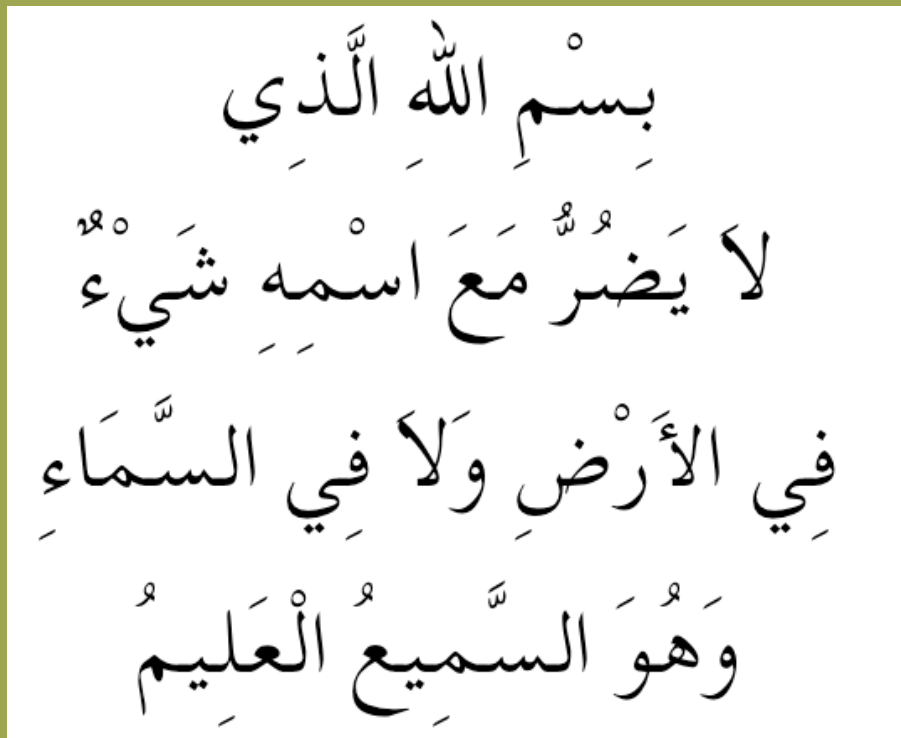 بِسْمِ اللهِ الَّذِي
لاَ يَضُرُّ مَعَ اسْمِهِ شَيْءٌ
فِي الأَرْضِ وَلاَ فِي السَّمَاءِ
وَهُوَ السَّمِيعُ الْعَلِيمُ